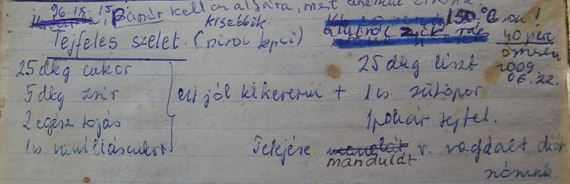 96. IX. 15. Papír kell az aljára, mert
kisebbik 150 °C
Tejfeles szelet (piros lapci) 40 perc
25 dkg cukor 25 dkg liszt 2009
5 dkg zsír ezt jól kikeverni + 1 cs sütőpor 06. 22.
2 egész tojás 1 pohár tejfel.
1 cs vaniliáscukor Tetejére mandulát v. vagdalt diót
szórunk